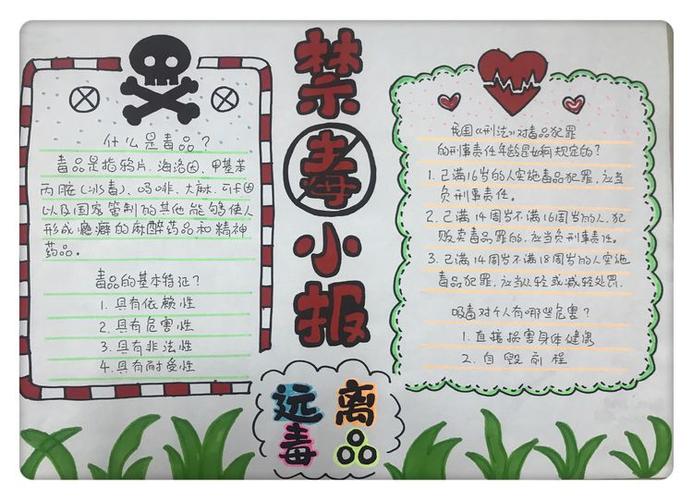 禁毒小报
什么是毒品？
毒品是指鸦片、海洛因、甲基苯
丙胺（冰毒）、吗啡、大麻、可卡因
以及国家管制的其他能够使人
形成瘾癖的麻醉药品和精神
药品。
毒品的基本特征？
1. 具有依赖性
2. 具有危害性
3. 具有非法性
4. 具有耐受性
我国《刑法》对毒品犯罪
的刑事责任年龄是如何规定的？
1. 已满16岁的人实施毒品犯罪，应当
负刑事责任。
2. 已满14周岁不满16周岁的人，犯
贩卖毒品罪的，应当负刑事责任。
3. 已满14周岁不满18周岁的人实施
毒品犯罪，应当从轻或减轻处罚.
吸毒对个人有哪些危害？
1. 直接损害身体健康
2. 自毁前程
远离
毒品